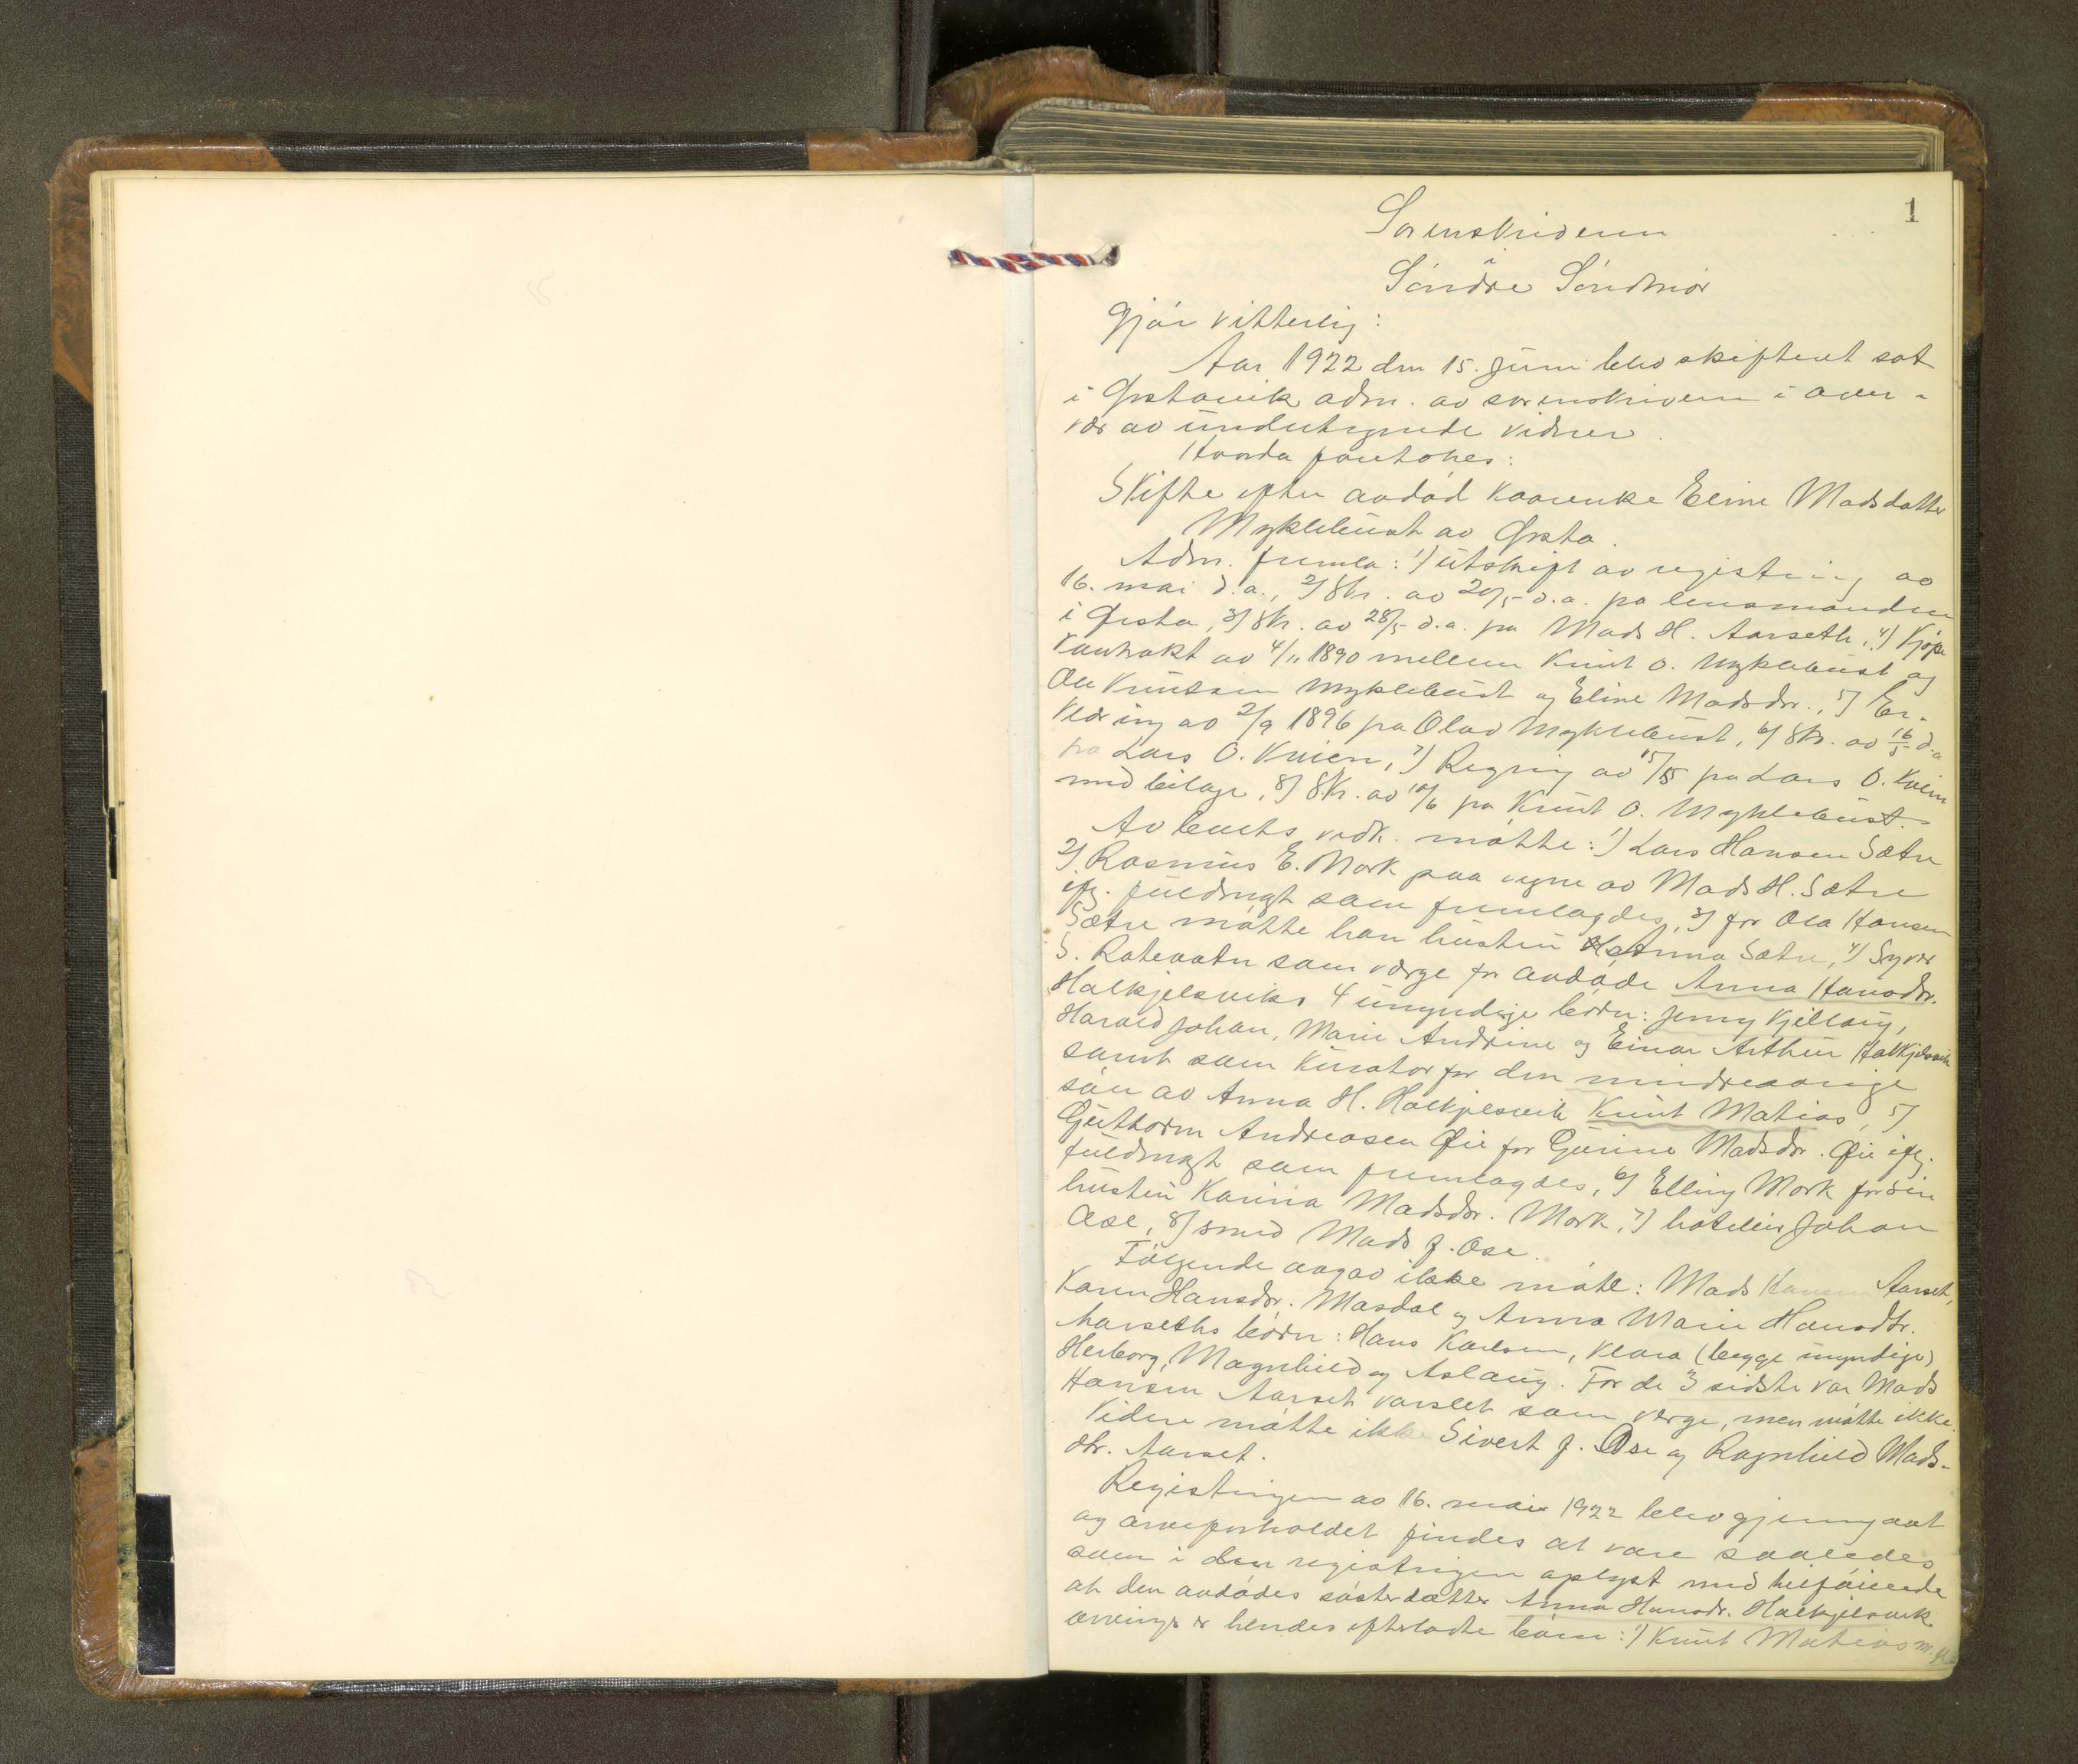 1
Sorenskriveren
i
Søndre Søndmør
gjør vitterlig:
Aar 1922 den 15. juni blev skifteret sat
i Ørstavik adm. av sorenskriveren i over-
vær av undertegnede vidner.
Hvorda foretokes:
Skifte efter avdød kaarenke Eline Madsdatter
Myklebust av Ørsta.
Adm. fremla: 1) utskrift av registring av
16. mai d.a., 2) Skr. av 20/5 d.a. fra lensmanden
i Ørsta, 3) Skr. av 28/5 d.a. fra Mads H. Aarseth, 4) Kjøpe
kontrakt av 4/11 1890 mellem Knut O. Myklebust og
Ole Knutsen Myklebust og Eline Madsdtr., 5) Er-
klæring av 2/9 1896 fra Olav Myklebust, 6) Skr. av 16/5 d.a
fra Lars O. Kvien, 7) Regning av 15/5 fra Lars O. Kvien
med bilage, 8) Skr. av 10/6 fra Knut O. Myklebust.
Av boets vedk. møtte: 1) Lars Hansen Sætre
2) Rasmus E. Mork paa vegne av Mads H. Sætre
iflg. fuldmagt som fremlagdes, 3) for Ola Hansen
Sætre møtte han hustru Anna Sætre, 4) Syver
S. Rotevatn som værge for avdøde Anna Hansdtr.
Halkjelsviks 4 umyndige børn: Jenny Kjellaug,
Harald Johan, Marie Andrine og Einar Arthur Halkjelsvik
samt som kurator for den mindreaarige
søn av Anna H. Halkjelsvik Knut Matias, 5)
Guttorm Andreasen Øie for Gurine Madsdtr. Øie iflg.
fuldmagt som fremlagdes, 6) Elling Mork for sin
hustru Karina Madsdtr. Mork, 7) hotelier Johan
Ose, 8) smed Mads J. Ose.
Følgende avgav ikke møte: Mads Hansen Aarset,
Karen Hansdtr. Masdal og Anna Marie Hansdtr.
Aarseths børn: Hans Karlsen, Klara (begge myndige)
Herborg, Magnhild og Aslaug. For de 3 sidste var Mads
Hansen Aarset varslet som værge, men møtte ikke.
Videre møtte ikke Sivert J. Ose og Ragnhild Mads-
dtr. Aarset.
Registringen av 16. mai 1922 blev gjennemgaat
og arveforholdet findes at være saaledes
som i den registringen oplyst med tilføiende
at den avdødes søsterdatter Anna Hansdr. Halkjelsvik
arvinger er hendes efterlatte børn: 1) Knut Matias